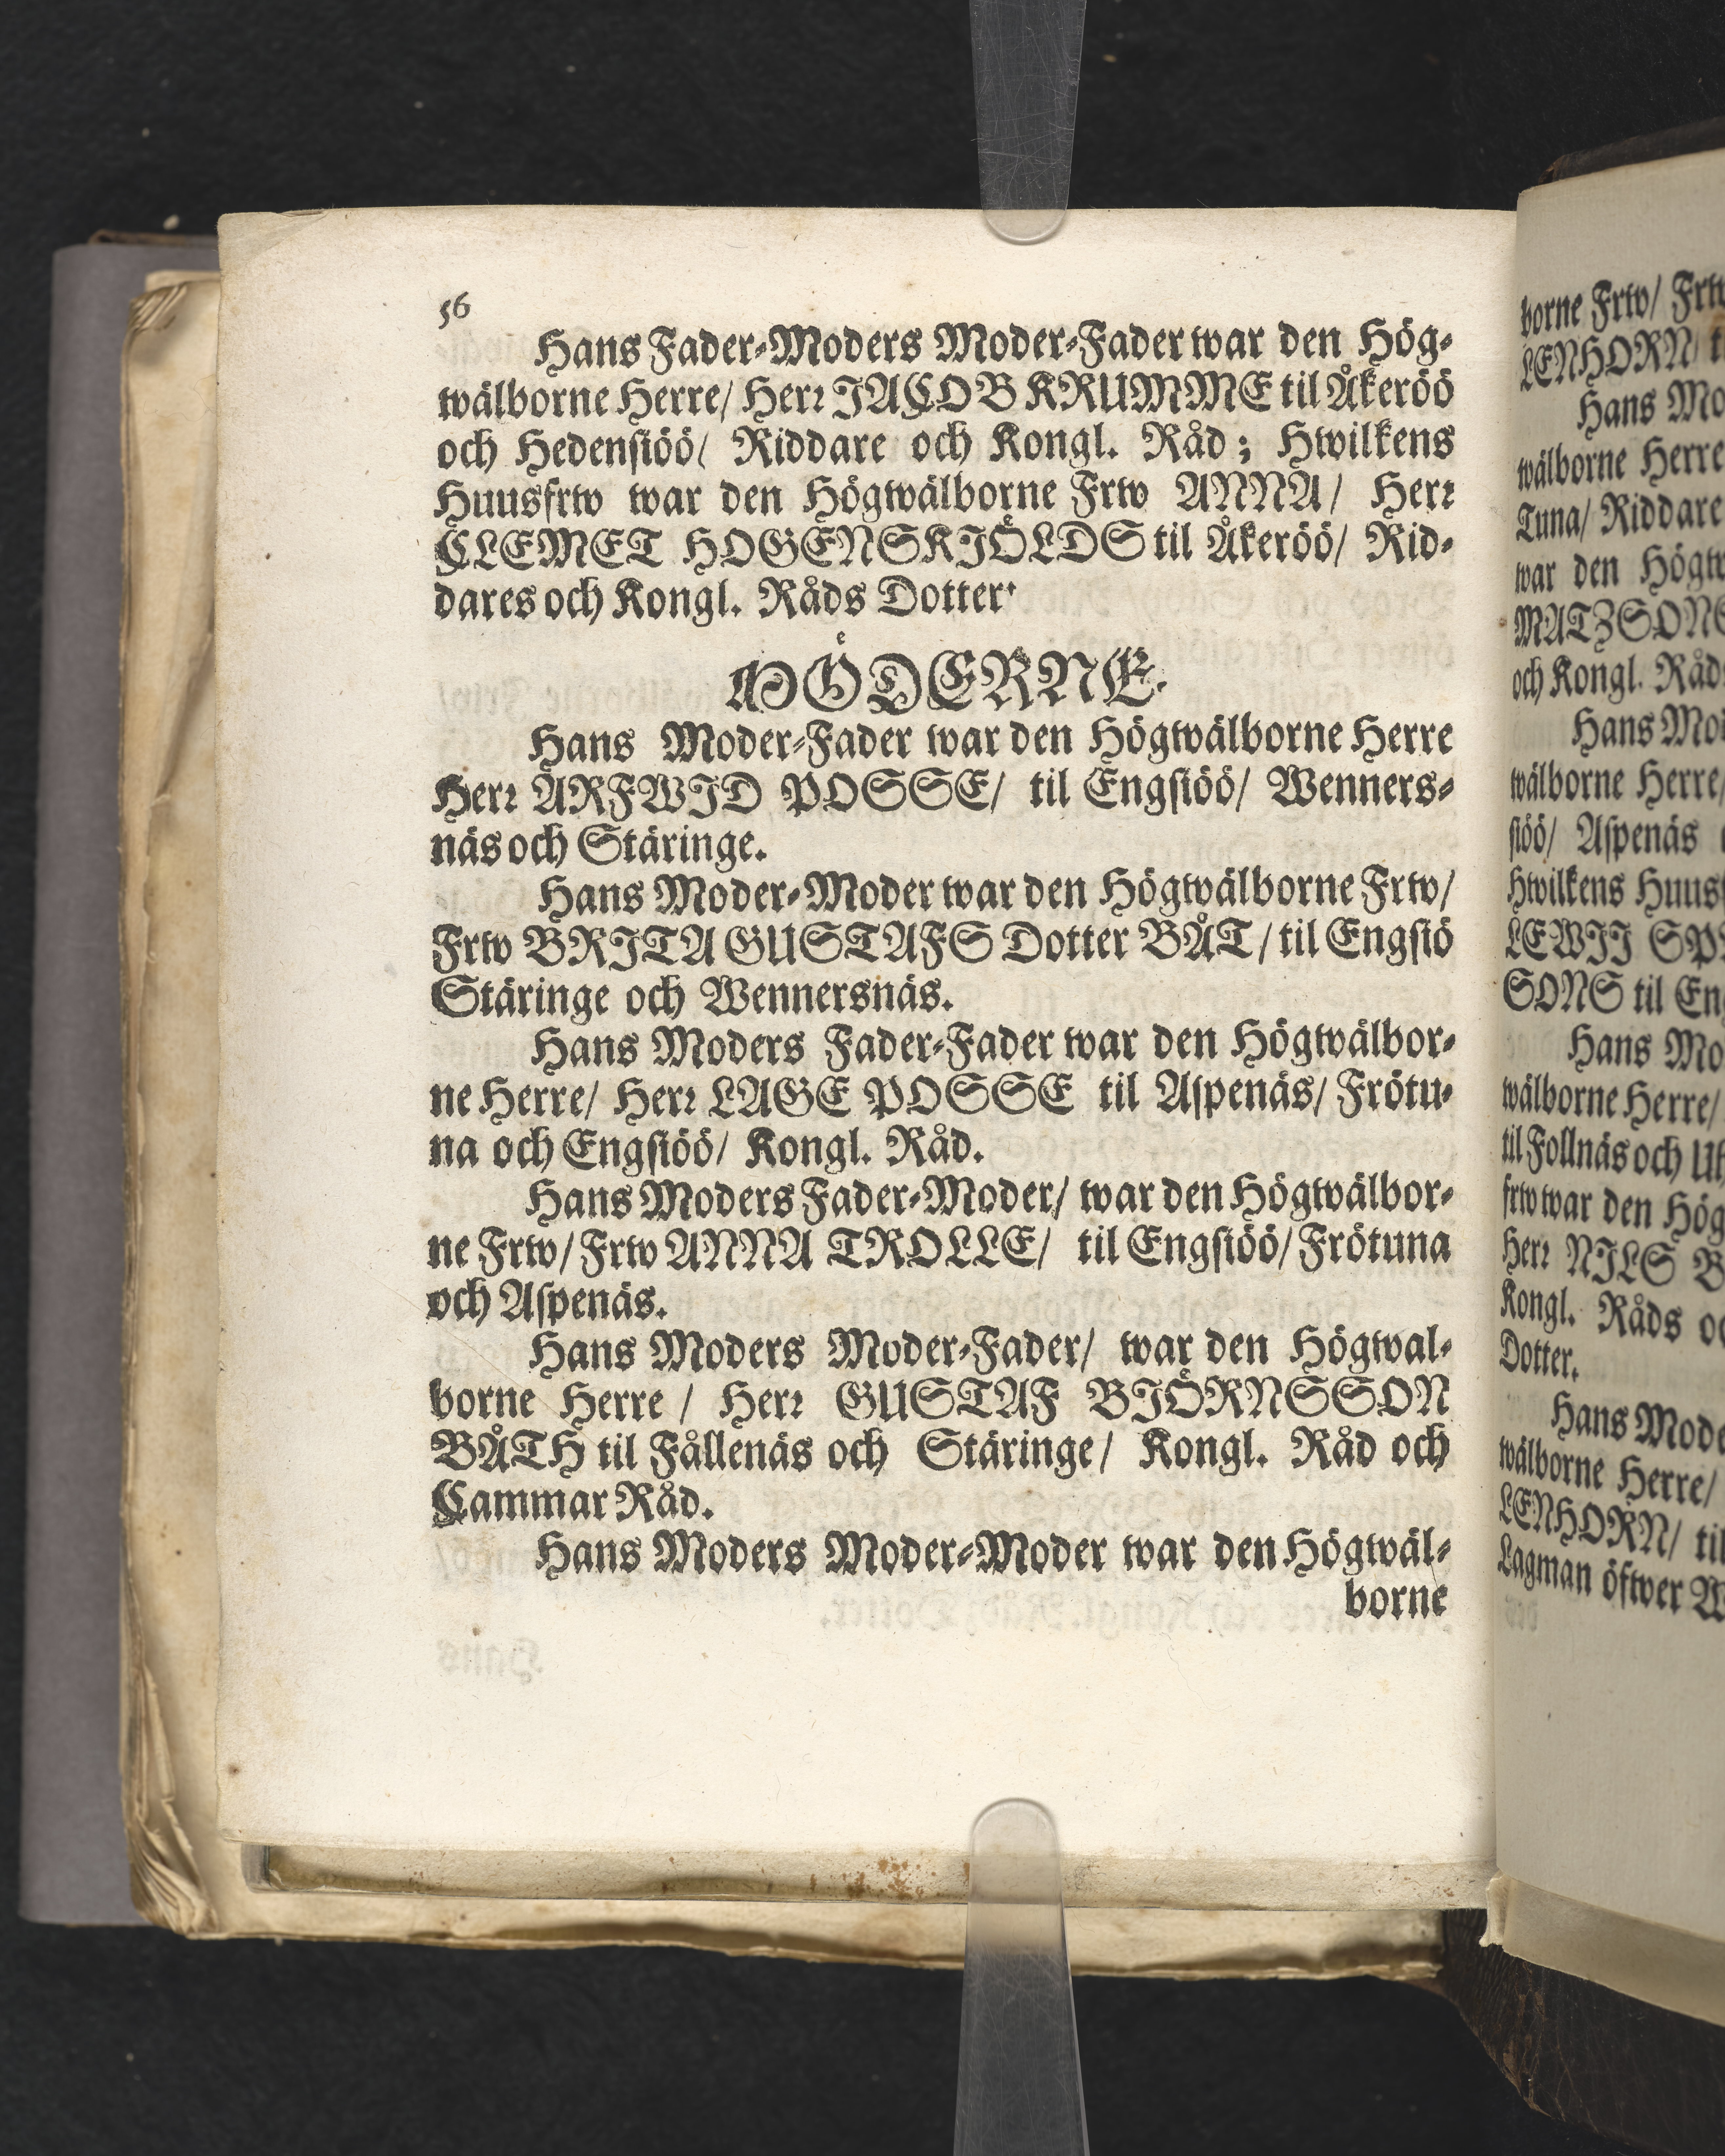 56
Hans Fader-Moders Moder-Fader war den Hög-
wälborne Herre/ Herr JACOB KRUMME til Åkeröö
och Hedensiöö/ Riddare och Kongl. Råd; Hwilkens
Huusfrw war den Högwälborne Frw ANNA/ Herr
CLEMET HOGENSKIÖLDS til Åkeröö/ Rid-
dares och Kongl. Råds Dotter.
MÖDERNE.
Hans Moder-Fader war den Högwälborne Herre
Herr ARFWID POSSE/ til Engsiöö/ Wenners-
näs och Stäringe.
Hans Moder-Moder war den Högwälborne Frw/
Frw BRITA GUSTAFS Dotter BÅT/ til Engsiö
Stäringe och Wennersnäs.
Hans Moders Fader-Fader war den Högwälbor-
ne Herre/ Herr LAGE POSSE til Aspenäs/ Frötu-
na och Engsiöö/ Kongl. Råd.
Hans Moders Fader-Moder/ war den Högwälbor-
ne Frw/ Frw ANNA TROLLE/ til Engsiöö/ Frötuna
och Aspenäs.
Hans Moders Moder-Fader/ war den Högwal-
borne Herre / Herr GUSTAF BIÖRNSSON
BÅTH til Fållenäs och Stäringe/ Kongl. Råd och
Cammar Råd.
Hans Moders Moder-Moder war den Högwäl-
borne
borne Frw/ Frw
LENHORN/
Hans
wälborne Herre
Tuna/ Riddare
war den
MATZSONS
och Kongl. Råds
Hans
wälborne Herre/
siöö/ Aspenäs
Hwilkens
LEWII
SONS til
Hans
wälborne Herre/
til Follnäs och
frw war den
Herr NILS
Kongl. Råds
Dotter.
Hans
wälborne Herre/
LENHORN/ til
Lagman öfwer